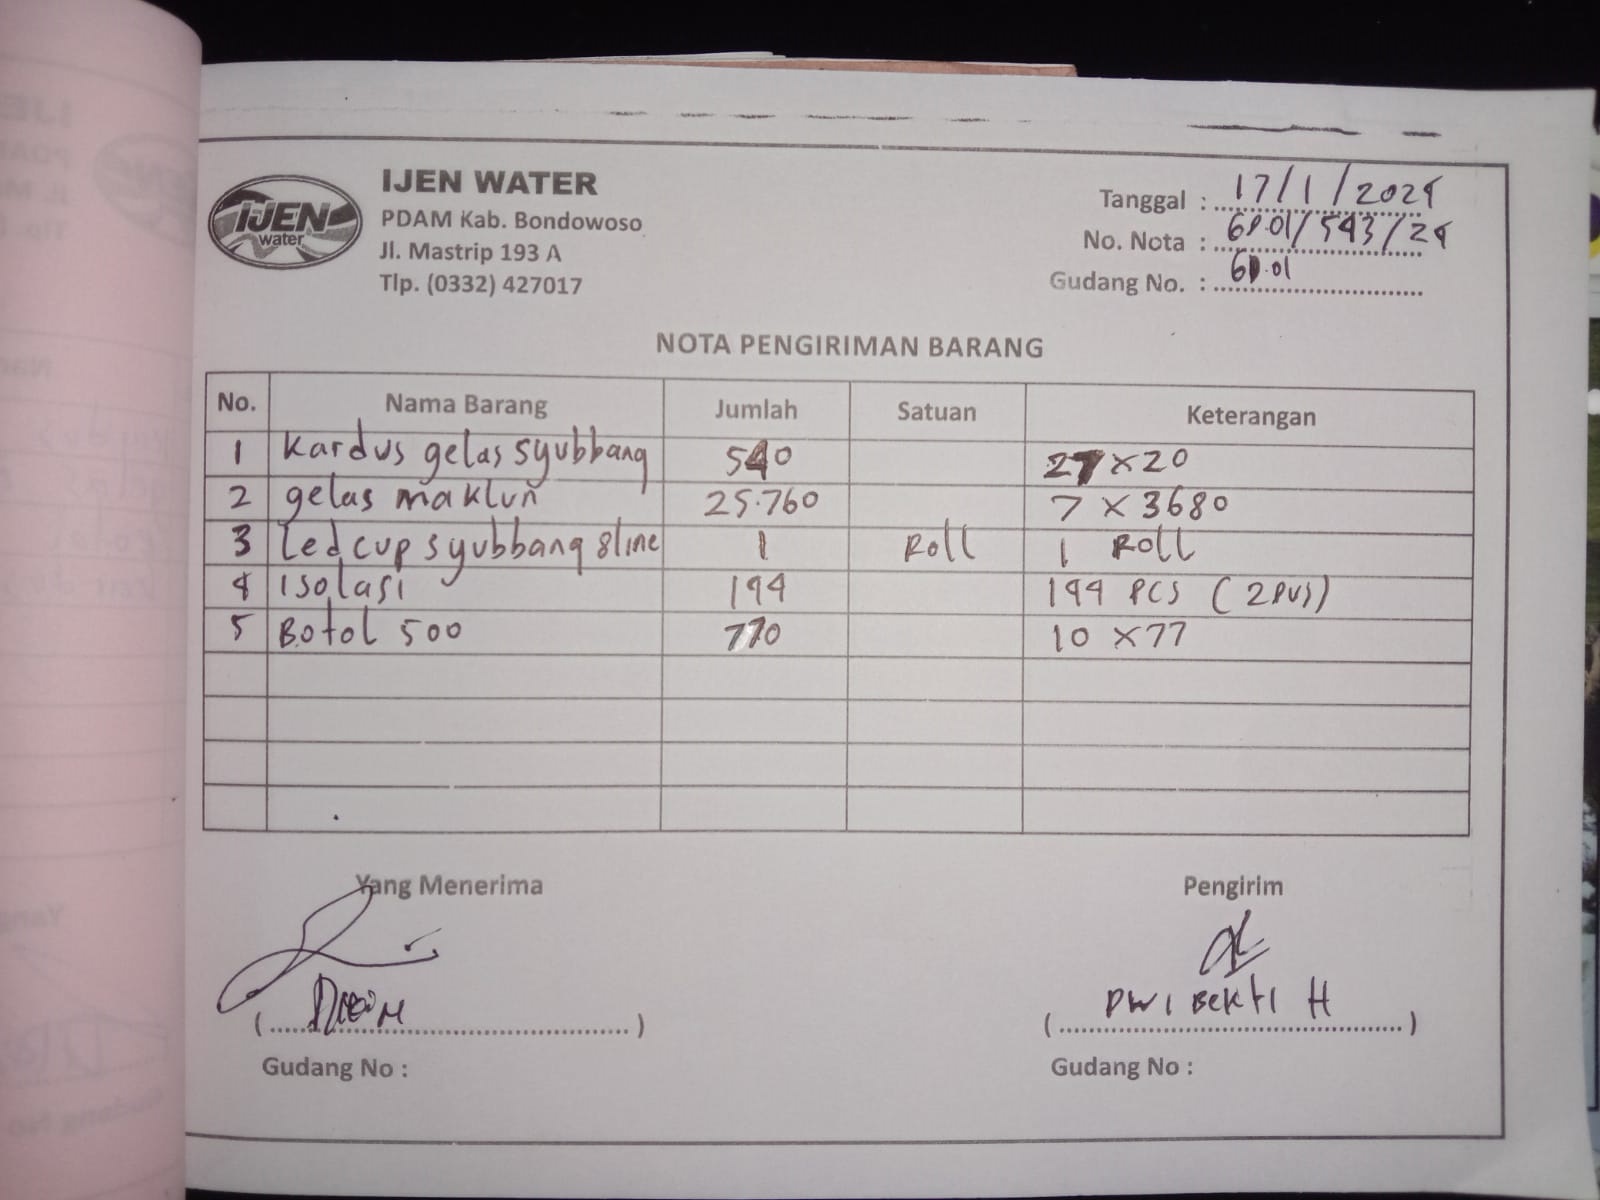 IJEN
water
IJEN WATER
PDAM Kab. Bondowoso
Jl. Mastrip 193 A
Tlp. (0332) 427017
Tanggal : 17/1/2024
No. Nota : 61.01/543/24
Gudang No. : 61.01
NOTA PENGIRIMAN BARANG
No. Nama Barang Jumlah Satuan Keterangan
1 Kardus gelas syubbang 540 27 x 20
2 gelas maklun 25.760 7 x 3680
3 Led cup syubbang 8 line 1 Roll 1 Roll
4 Isolasi 144 144 PCS (2 Dus)
5 Botol 500 770 10 x 77
Yang Menerima Pengirim
( ) ( DWI BEKTI H )
Gudang No : Gudang No :